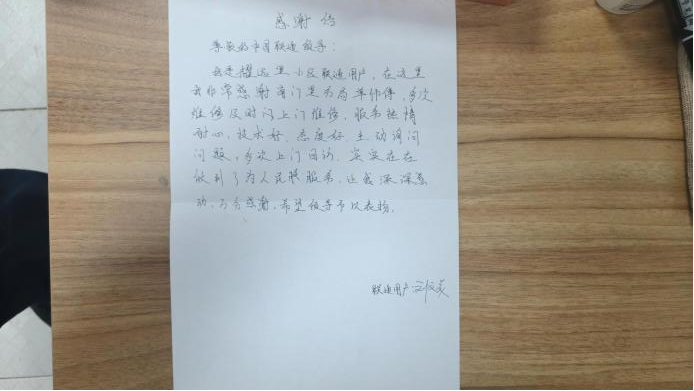 感谢信
尊敬的中国联通领导:
我是耀远里小区联通用户,在这里
我非常感谢南门里分局单伟伟,多次
维修及时上门维修,服务热情
耐心,技术好,态度好,主动询问
问题,多次上门回访,实实在在
做到了为人民服务,让我深深感
动,万分感谢,希望领导予以表扬。
联通用户: